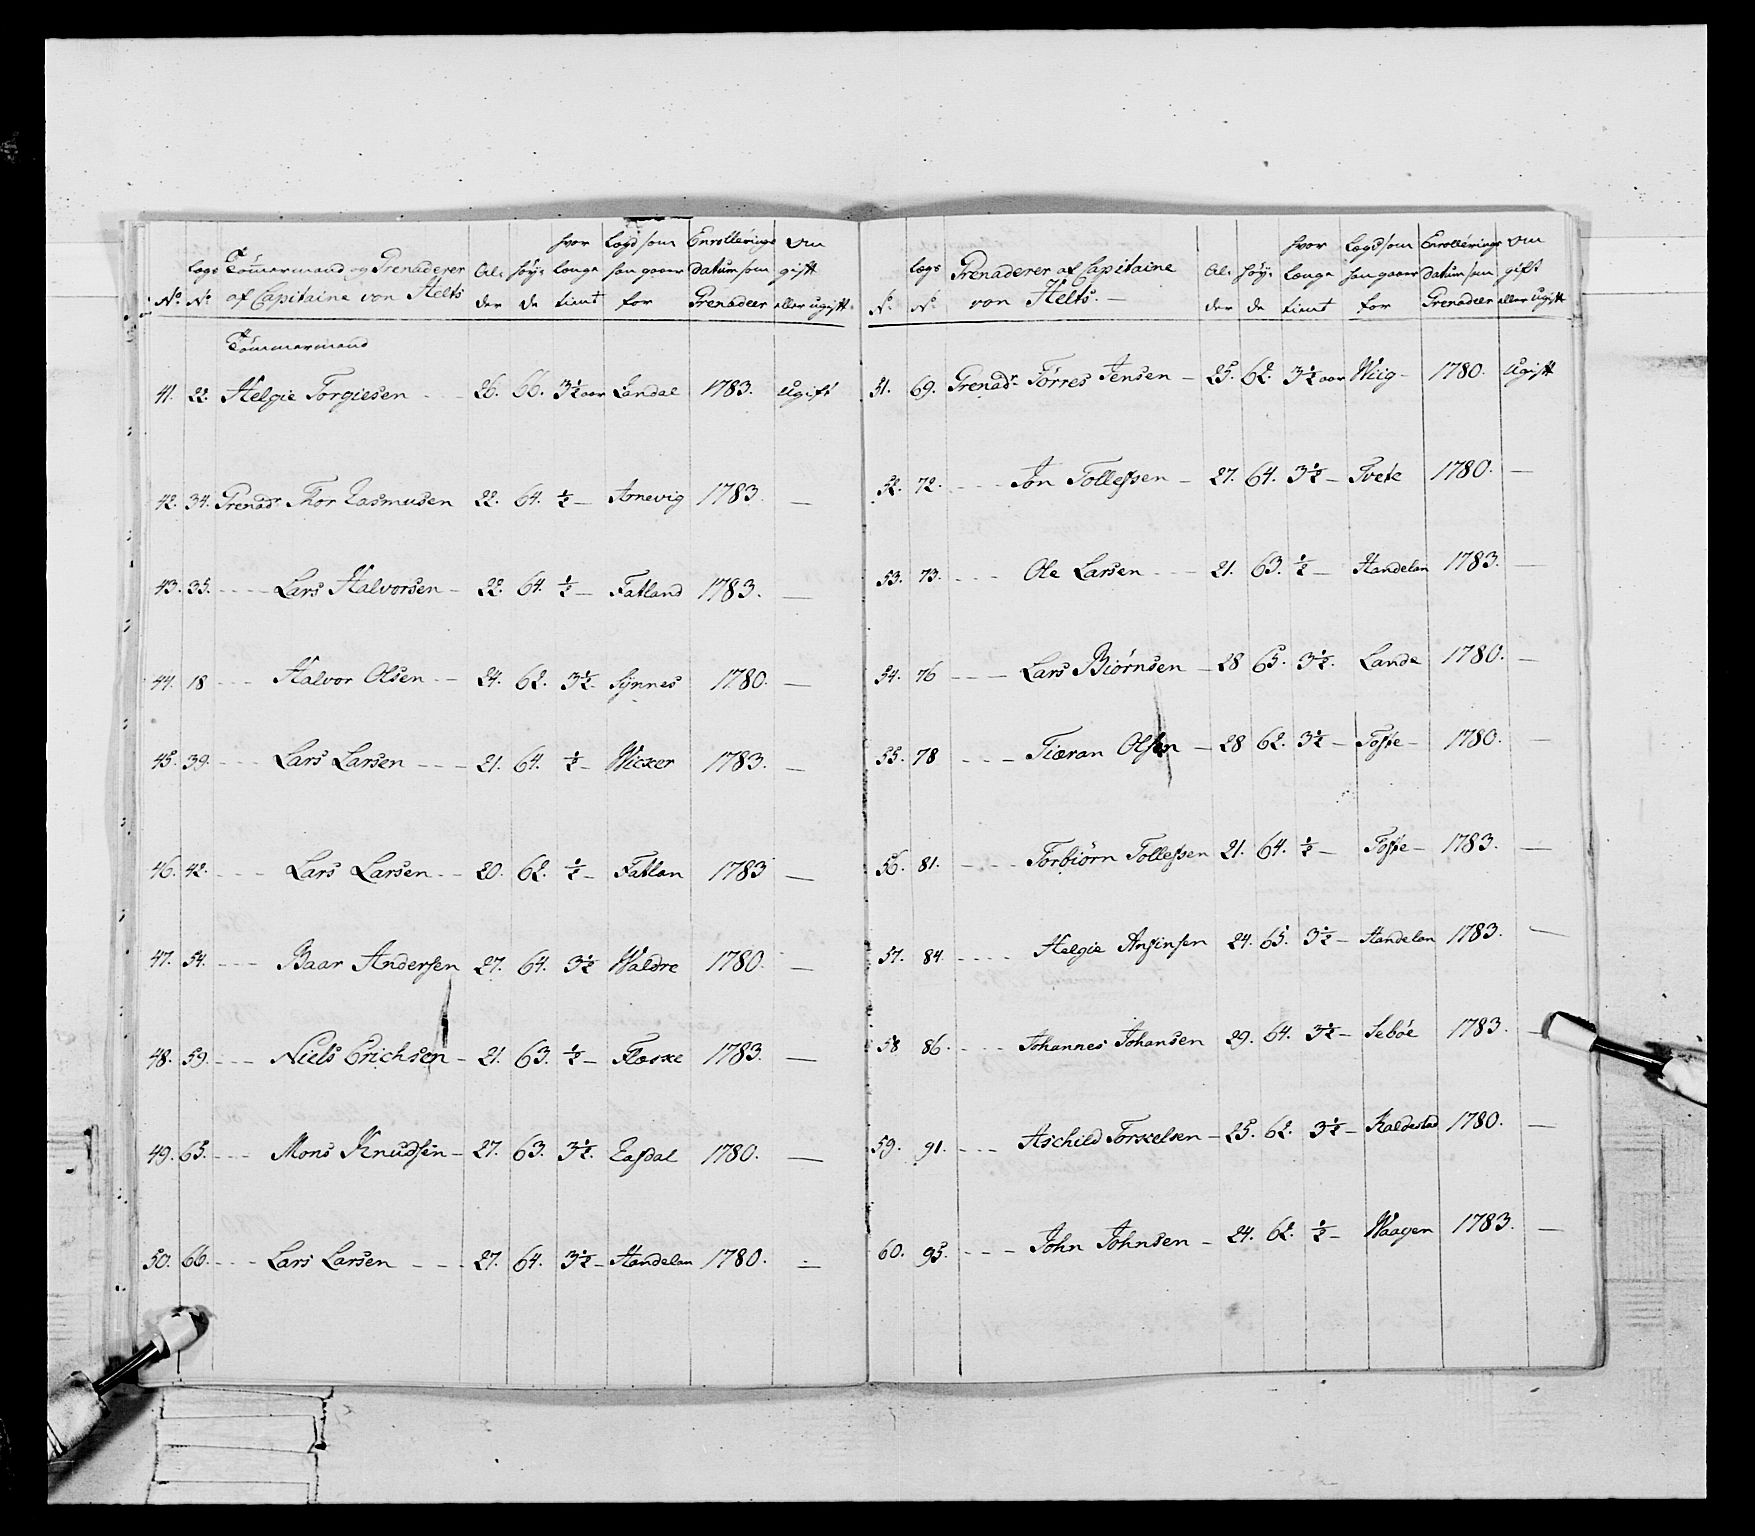 No. lægs No. Tömmermænd og Grenaderer af Capitaine von Helts Al: der höy: de hvor længe tient Lægd som han gaaer for Enrollerings datum som Grenadeer om gift eller ugift.
Tömmermænd
41. 22. Helgie Torgiesen - - 26. 66. 3½ aar Landal 1783. Ugift
42. 34. Grenadr Thor Rasmusen 22. 64. ½ - Arnevig 1783. —
43. 35. - - - - Lars Halvorsen - 22. 64. ½ - Fatland 1783. —
44. 18 - - - Halvor Olsen - - 24. 62. 3½ - Synnes 1780. —
45. 39. - - - Lars Larsen - - - 21. 64. ½ - Wicker 1783. —
46. 42. - - - - Lars Larsen - - 20. 62. ½ - Fatlan 1783 —
47. 54. - - - Baar Andersen 27. 64. 3½ Waldre 1780. —
48. 59. - - - - Niels Erichsen - 21. 63. ½ - Flæske 1783. —
49. 65. - - - - Mons Knudsen - 27. 63. 3½. 1780. —
50. 66. - - - - Lars Larsen - - - 27. 64. 3½ - Handelan 1780. —
No. lægs No. Grenaderer af Capitaine von Helts. — Al: der höy: de hvor længe tient Lægd som han gaaer for Enrollerings datum som Grenadeer om gift eller ugift
51. 69. Grenadr Törres Jensen - 25. 62. 3½ aar Wiig - 1780. Ugift
52. 72. - - - - Jon Tollefsen - 27. 64. 3½ - Tvete 1780. —
53. 73. - - - - Ole Larsen - - - 21. 63. ½ - Handelan 1783.
54. 76 - - - - Lars Biörnsen - 28 65. 3½. Lande 1780. —
55. 78 - - - - Tiæran Olsen - 28 62. 3½ - Tofte - 1780. —
56. 81. - - - - Torbiörn Tollefsen 21. 64. ½ - Tofte - 1783. —
57. 84. - - - - Helgie 24. 65. 3½ - Handelan 1783. —
58 86. - - - - Johannes Johansen 29. 64. 3½ - Seböe 1783. —
59. 91. - - - Aschild Torkelsen - 25. 62. 3½ - Kaldestad 1780. —
60. 95. - - - - John Johnsen - 24. 62. ½ - Waagen 1783. —